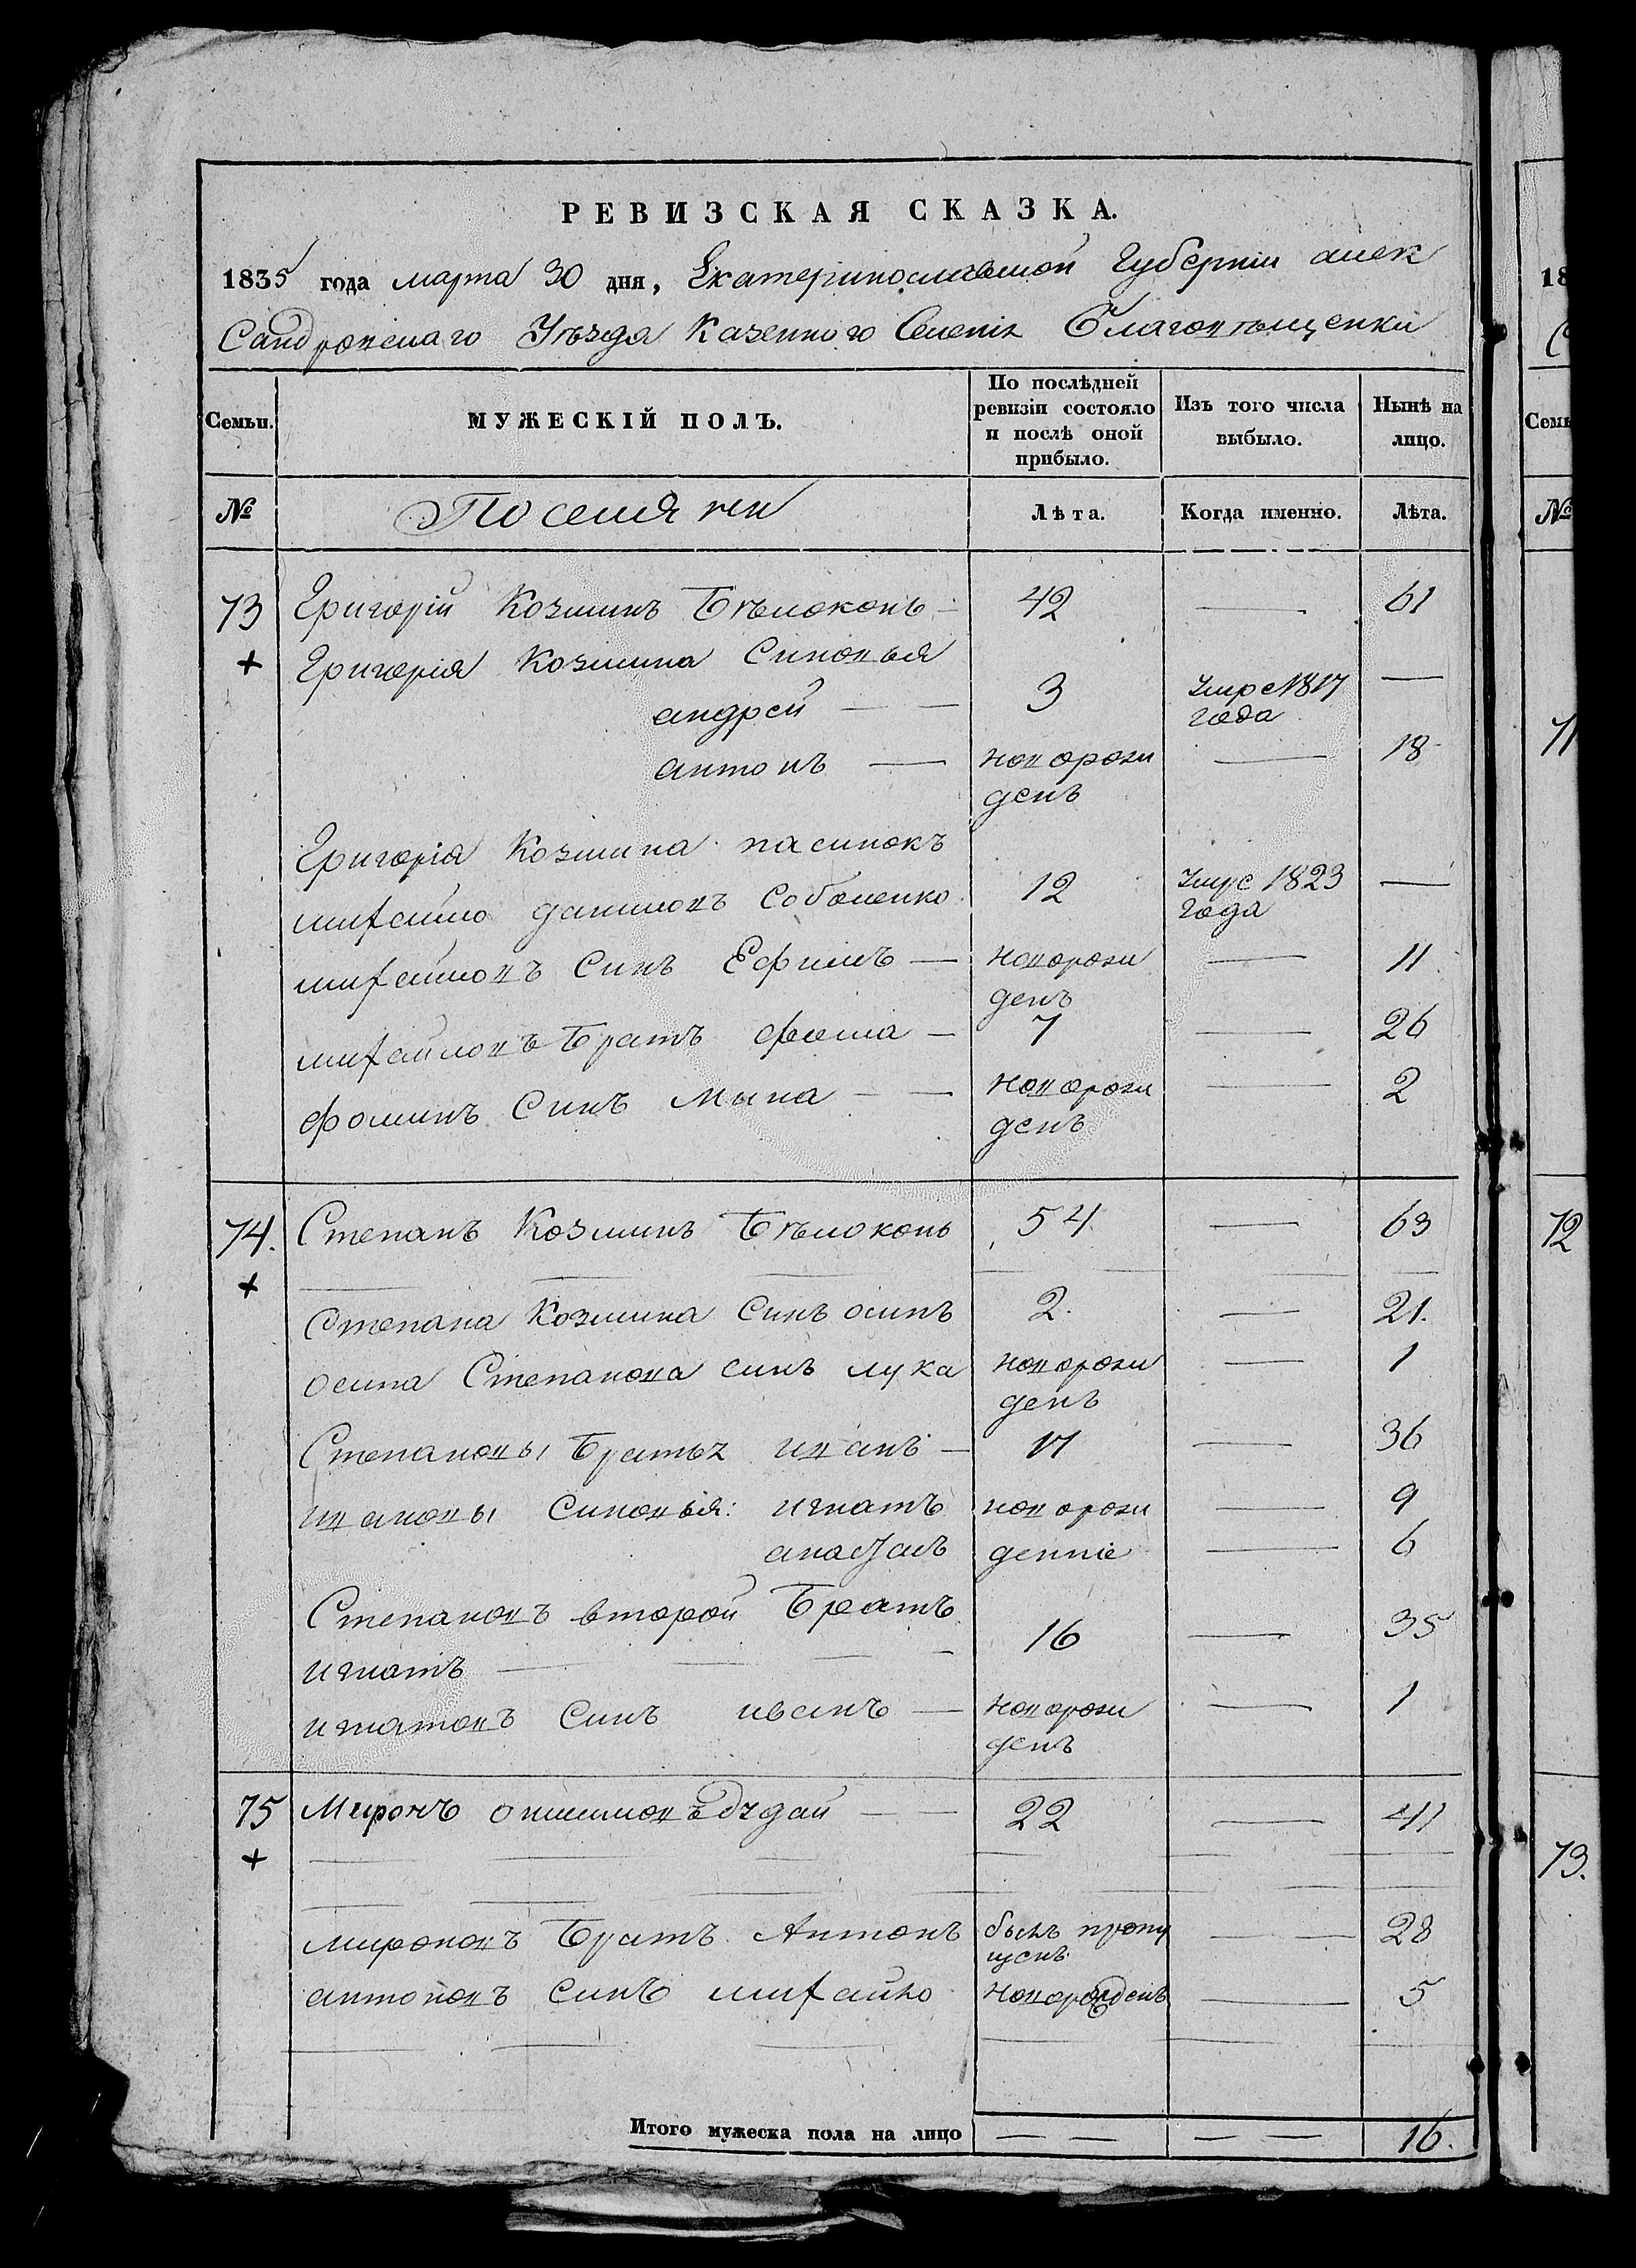 РЕВИЗСКАЯ СКАЗКА.
1835 года марта 30 дня, Екатеринославской Губернии алек
сандровскаго Уѣзда Казенного Селенія Благовѣщенки
Семьи. МУЖЕСКІЙ ПОЛЪ. По послѣдней ревизіи состояло и послѣ оной прибыло. Изъ того числа выбыло. Нынѣ на лицо.
№ Поселяне Лѣта. Когда именно. Лѣта.
73 Григорій Козминъ Бѣлоконь 42 — 61
+ Григорія Козмина Синовья
андрей — — 3 умре 1817 года —
антонъ — новорожденъ — 18
Григорія Козмина пасинокъ
михайло даниловъ Соболенко 12 умре 1823 года —
михайловъ Синъ Ефимъ — новорожденъ — 11
михайловъ Братъ фома — 7 — 26
фоминъ Синъ мына — — новорожденъ — 2
74. Степанъ Козминъ Бѣлоконь 54 — 63
+
Степана Козмина Синъ осипъ 2. — 21.
осипа Степанова синъ лука новорожденъ — 1
Степановы Братья иванъ — 17 — 36
ивановы Синовья: игнатъ новорож — 9
денніе — 6
Степановъ второй Братъ
игнатъ — 16 — 35
игнатовъ Синъ иванъ — новорожденъ — 1
75 Миронъ — — 22 — 41
+
мироновъ Братъ Антонъ былъ пропущенъ — — 28
антоновъ Синъ михайло новорожденъ — 5
Итого мужеска пола на лицо — — — — 16.
18
Семь
№
71
72
73.